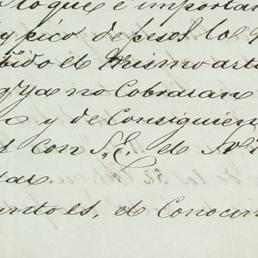 loque é importa
y pico de pesos la
bido el mismo art
q.e ya no Cobraran
y de Consiguien
con S.E. el
ento es, el Conocim